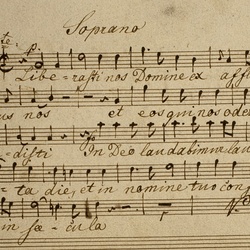 Soprano
te:
p.
Libe=rasti nos Domine ex affl
us nos et eos qui nos ode
=disti In Deo laudabimur lau
=ta die, et in nomine tuo con
in sæ=cula